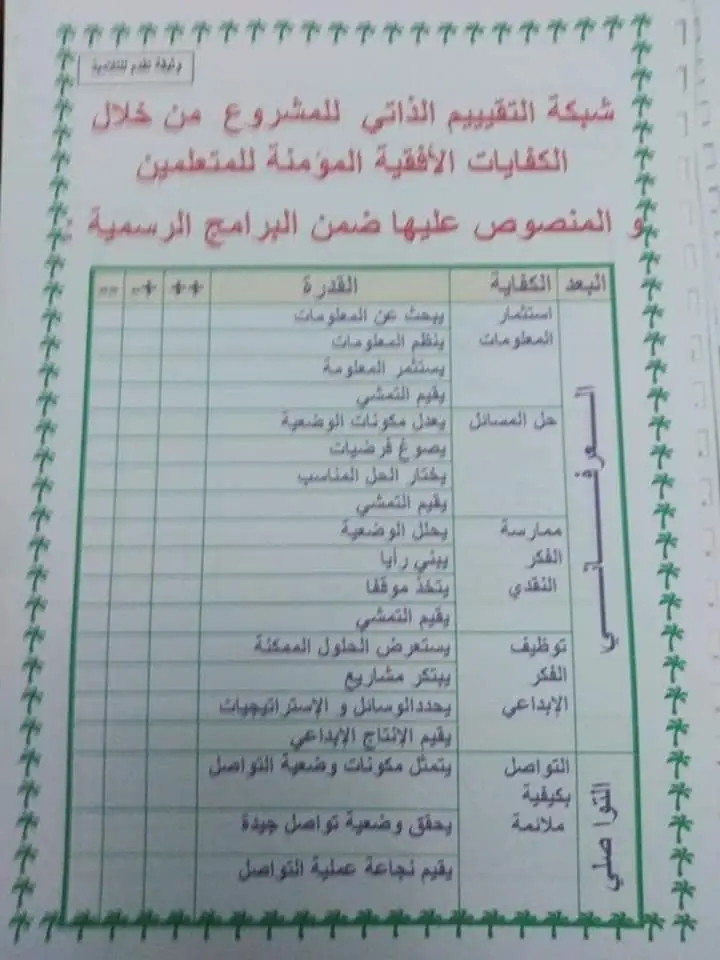 وثيقة تقدم للتلامية
شبكة التقيييم الذاتي للمشروع من خلال
الكفايات الأفقية المؤمنة للمتعلمين
و المنصوص عليها ضمن البرامج الرسمية :
البعد الكفاية القدرة ++ +- --
المعرفـــــــــي
استثمار المعلومات
يبحث عن المعلومات
ينظم المعلومات
يستثمر المعلومة
يقيم التمشي
حل المسائل
يعدل مكونات الوضعية
يصوغ فرضيات
يختار الحل المناسب
يقيم التمشي
ممارسة الفكر النقدي
يحلل الوضعية
يبني رأيا
يتخذ موقفا
يقيم التمشي
توظيف الفكر الإبداعي
يستعرض الحلول الممكنة
يبتكر مشاريع
يحددالوسائل و الإستراتيجيات
يقيم الإنتاج الإبداعي
التواصلي
التواصل بكيفية ملائمة
يتمثل مكونات وضعية التواصل
يحقق وضعية تواصل جيدة
يقيم نجاعة عملية التواصل